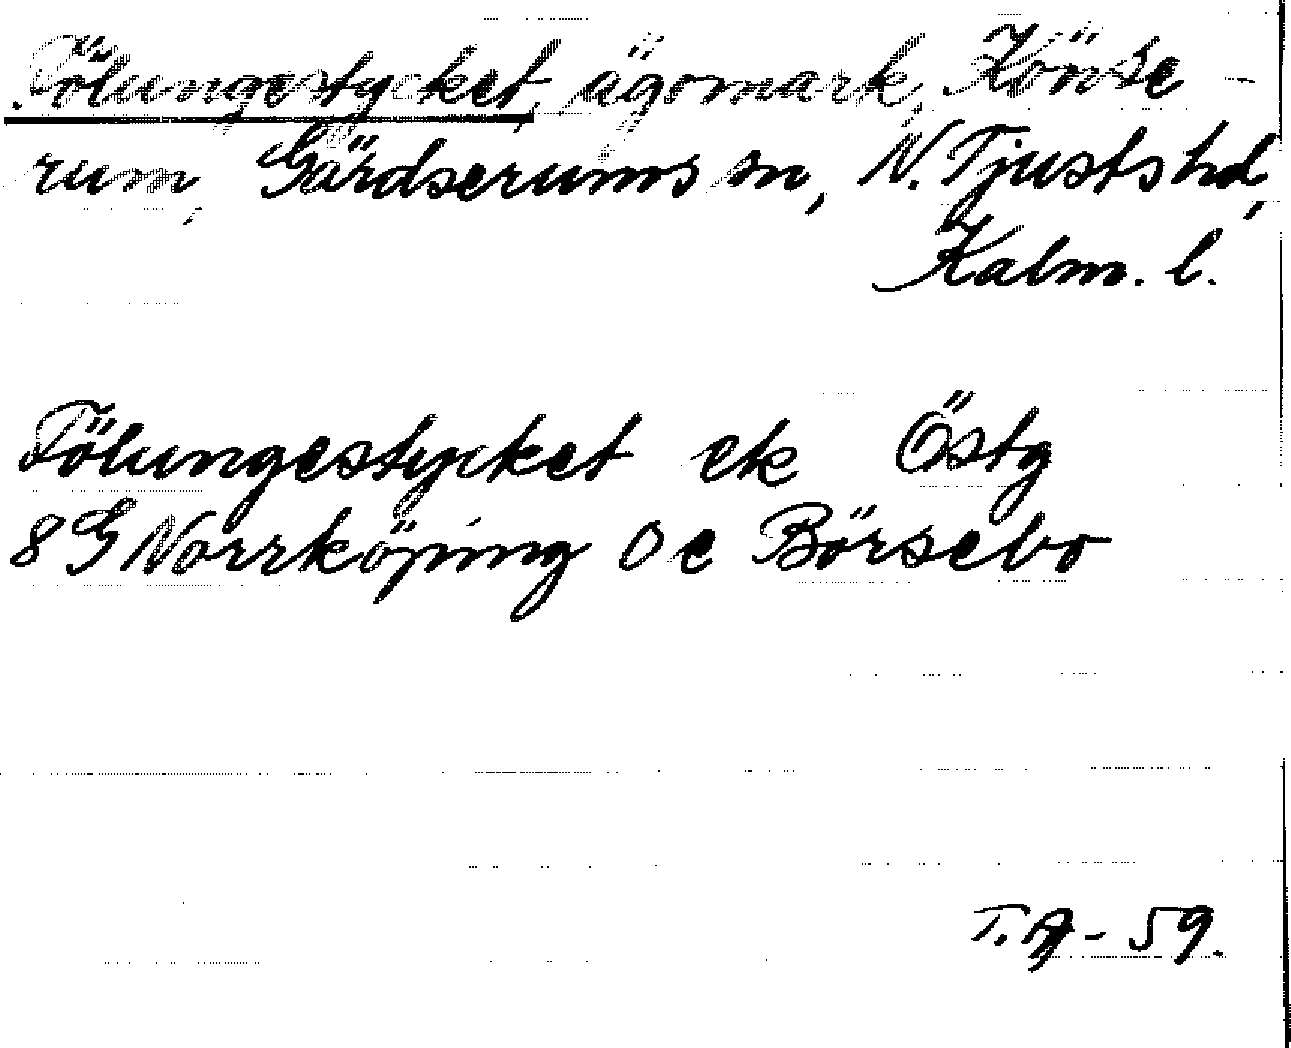 Fölungestycket, ägomark, Könse-
rum, Gärdserums sn, N. Tjusts hd,
Kalm. l.
Fölungestycket ek Östg
8G Norrköping 0e Börsebo
T.A-59.